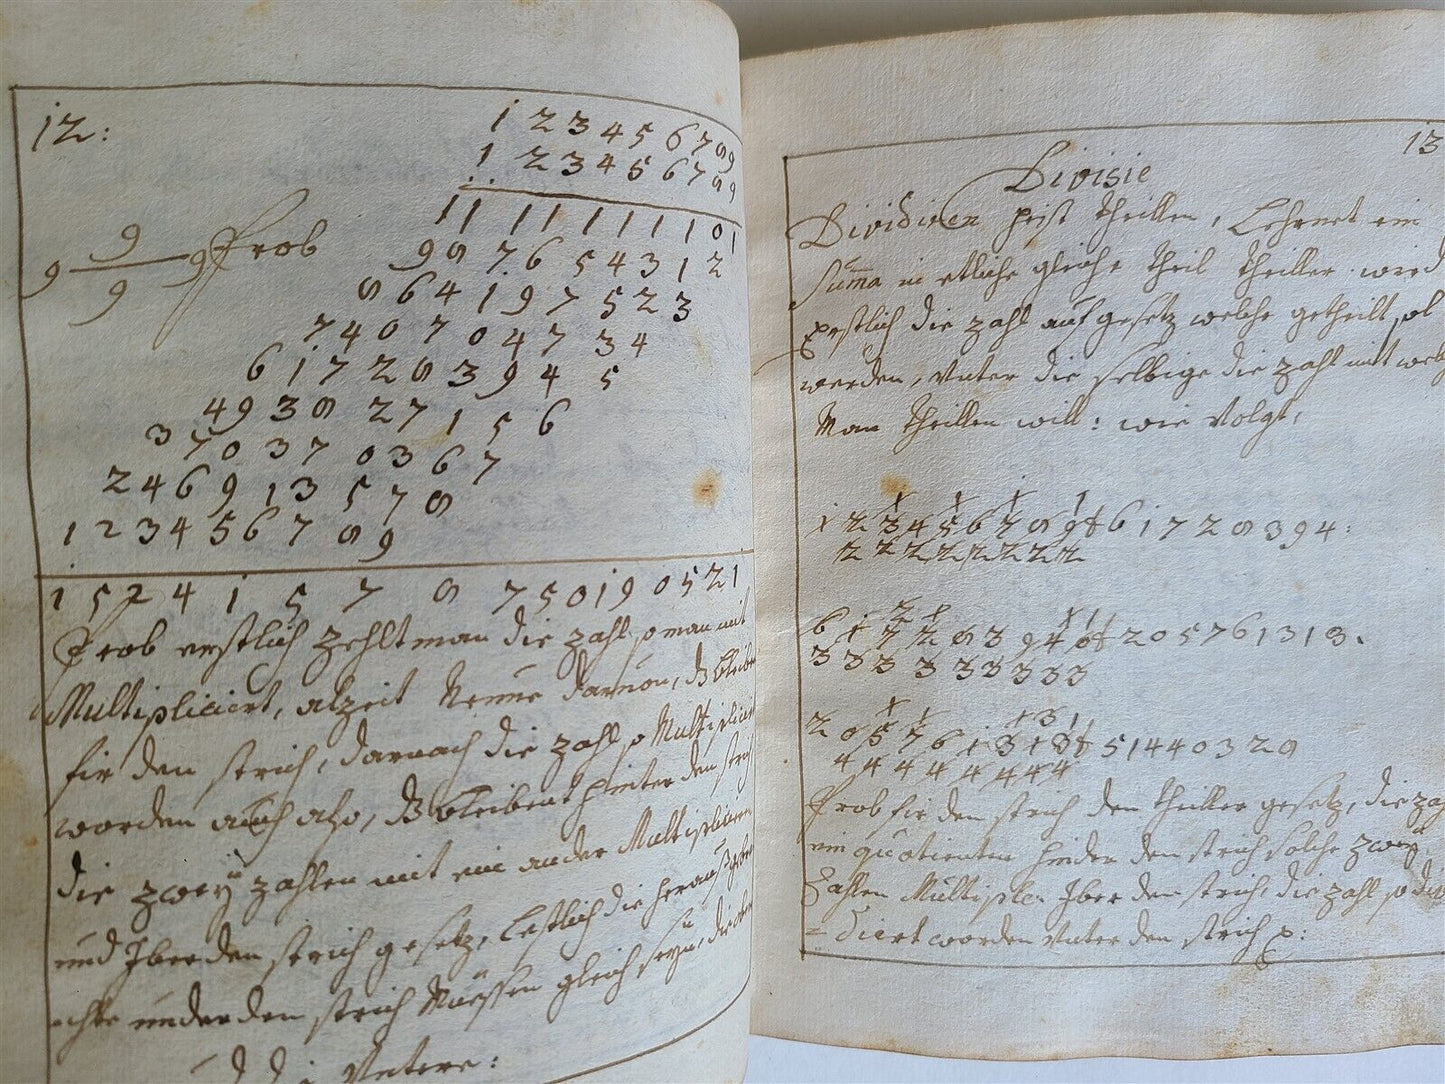 12:
1 2 3 4 5 6 7 8 9
1 2 3 4 5 6 7 8 9
1 1 1 1 1 1 1 1 0 1
9 8 7 6 5 4 3 1 2
8 6 4 1 9 7 5 2 3
7 4 0 7 0 4 7 3 4
6 1 7 2 8 3 9 4 5
4 9 3 8 2 7 1 5 6
3 7 0 3 7 0 3 6 7
2 4 6 9 1 3 5 7 8
1 2 3 4 5 6 7 8 9
9
9 9 Prob
9
1 5 2 4 1 5 7 8 7 5 0 1 9 0 5 2 1
Prob erstlich zehlt man die zahl so man mit
Multipliciert, alzeit Neune daruon, ß bleibt
fir den strich, darnach die zahl so Multipliciert
worden auch also, ß bleibent hinter den strich
die zweÿ zahlen mit ein ander Multiplicieren
und Iber den strich gesetz, lestlich die herauß
under den strich Müessen gleich seyn, die ober
die Untere:
13
Divisie
Dividiren heist theillen, Lehrnet ein
Summa in etliche gleiche theil theillen wird
erstlich die zahl aufgesetz welche getheilt sol
werden, Unter die selbige die zahl mit welch
Man theillen will: wie Volgt,
1 1 1 1
1 2 3 4 5 6 7 8 9 f 6 1 7 2 8 3 9 4:
2 2 2 2 2 2 2 2
2 1 1 1
6 1 7 2 8 3 9 4 f 2 0 5 7 6 1 3 1 3.
3 3 3 3 3 3 3 3 3
1 1 1 3 1
2 0 5 7 6 1 3 1 3 f 5 1 4 4 0 3 2 8
4 4 4 4 4 4 4 4
Prob fir den strich den theiller gesetz, die zahl
ein quotienten hinder den strich solche zweÿ
Zahlen Multiple. Iber den strich, die zahl so divi
= diert worden Unter den strich p: